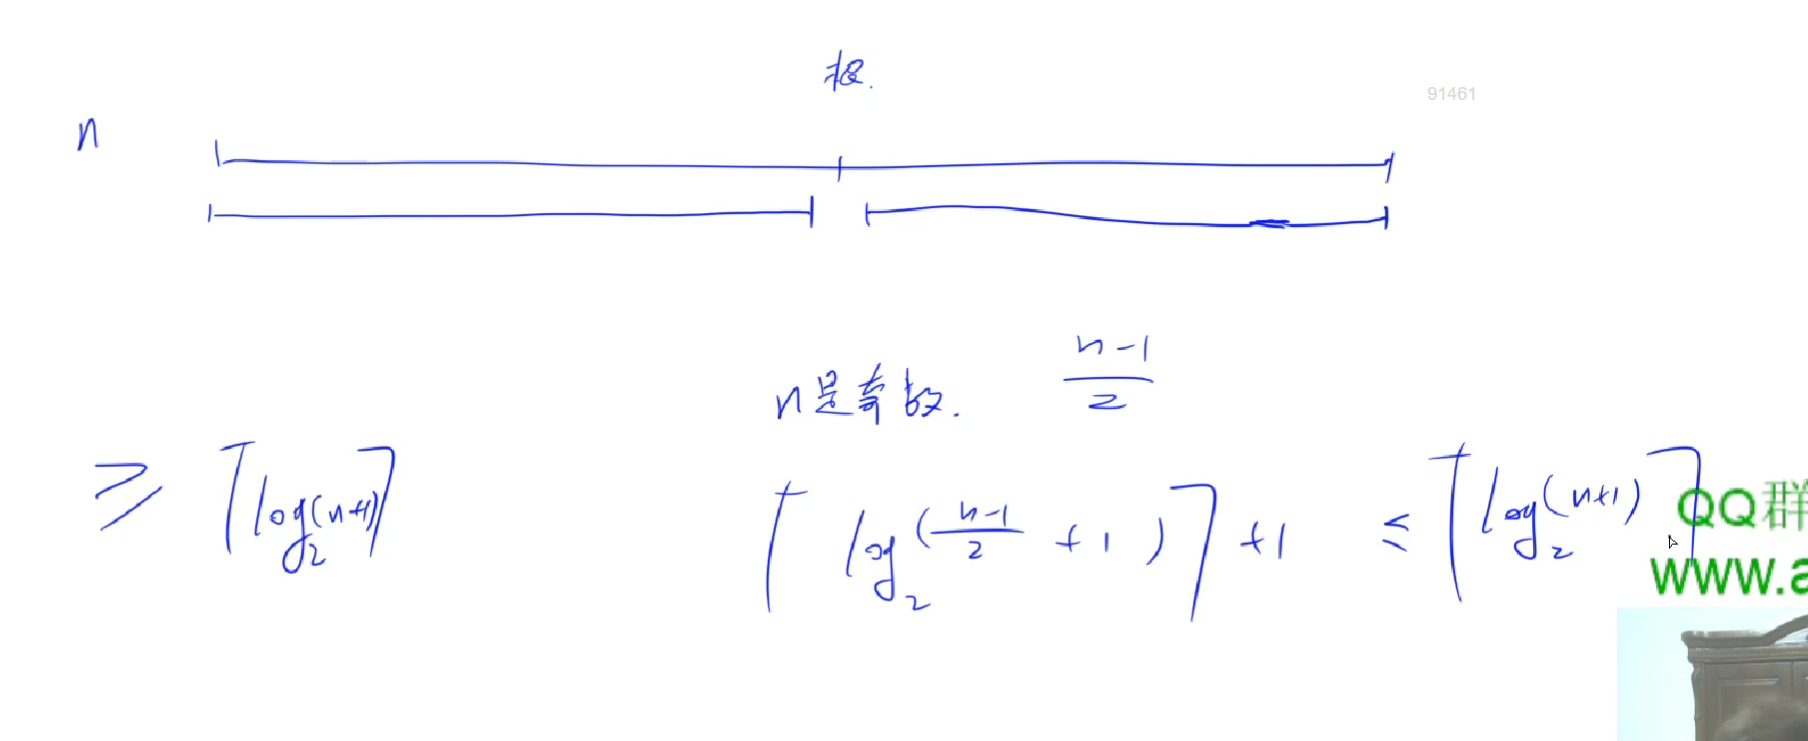 根.
91461
n
n是奇数. \frac{n-1}{2}
≥ ⌈log₂(n+1)⌉ ⌈log₂(\frac{n-1}{2}+1)⌉+1 ≤ ⌈log₂(n+1)⌉
QQ群
www.a